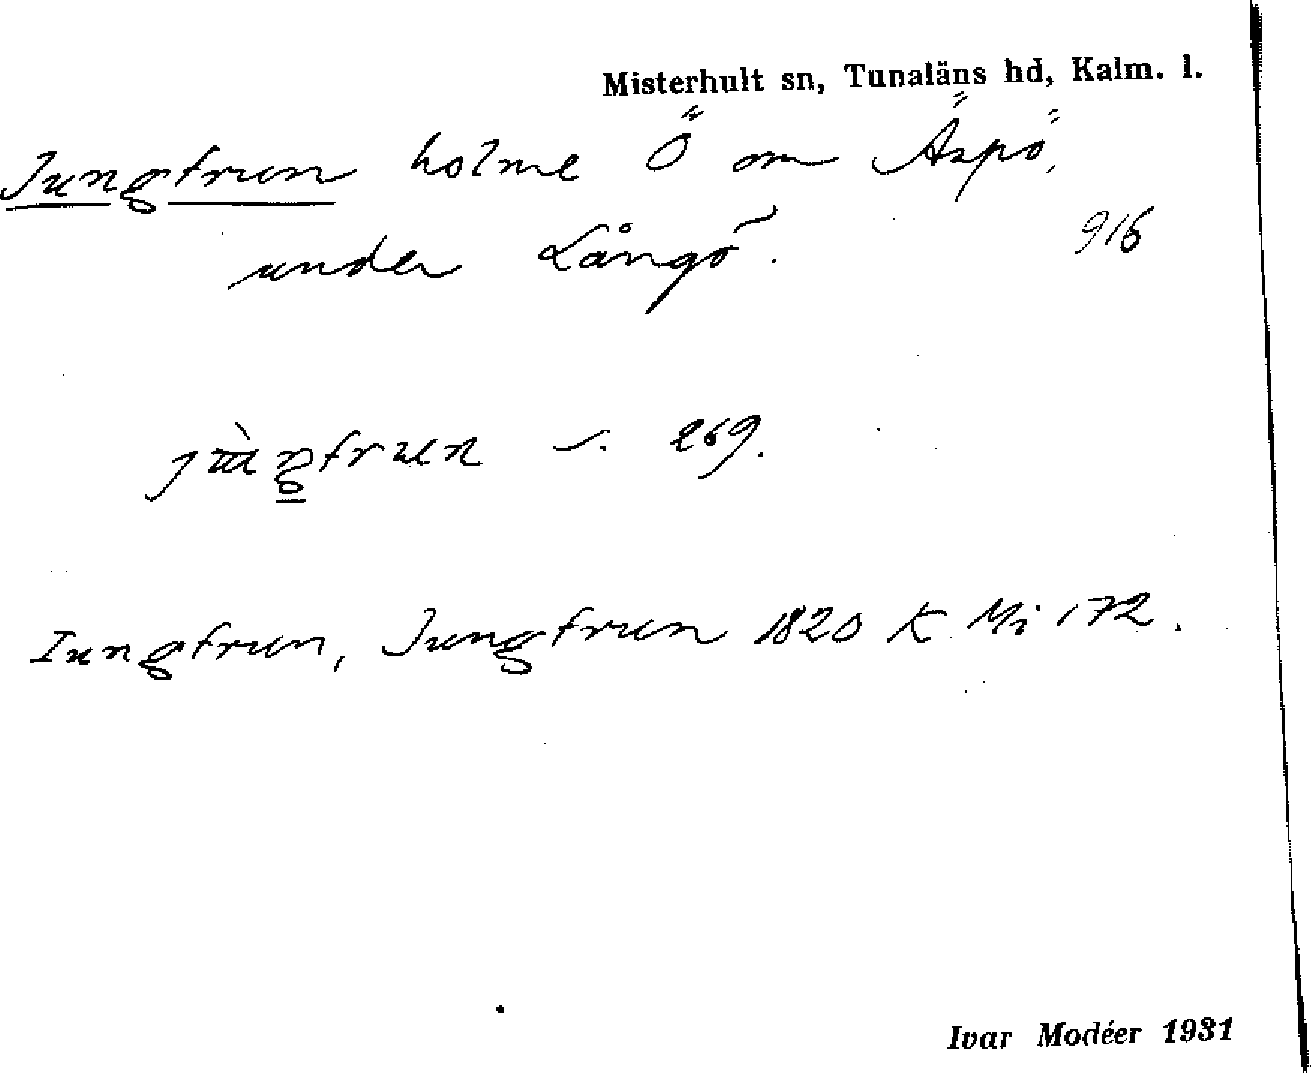 Misterhult sn, Tunaläns hd, Kalm. l.
Jungfrun holme Ö om Äspö,
under Långö.
916
s. 269.
Iungfrun, Jungfrun 1820 K Mi 172.
Ivar Modéer 1931